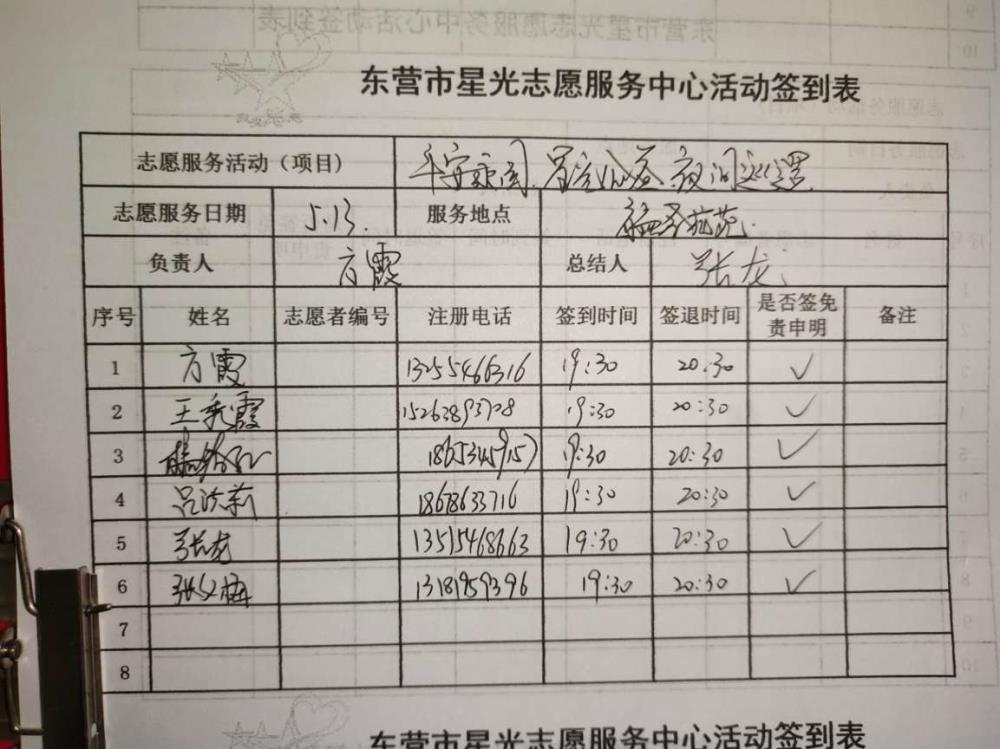 东营市星光志愿服务中心活动签到表
志愿服务活动（项目） 平安 夜间巡逻
志愿服务日期 5.13. 服务地点
负责人 方霞 总结人 张龙
序号 姓名 志愿者编号 注册电话 签到时间 签退时间 是否签免责申明 备注
1 方霞 13255466316 19:30 20:30 ✓
2 王秀霞 15263893708 19:30 20:30 ✓
3 18653459157 19:30 20:30 ✓
4 吕洪莉 18678633716 19:30 20:30 ✓
5 张龙 13515468663 19:30 20:30 ✓
6 张父梅 13181959396 19:30 20:30 ✓
7
8
东营市星光志愿服务中心活动签到表